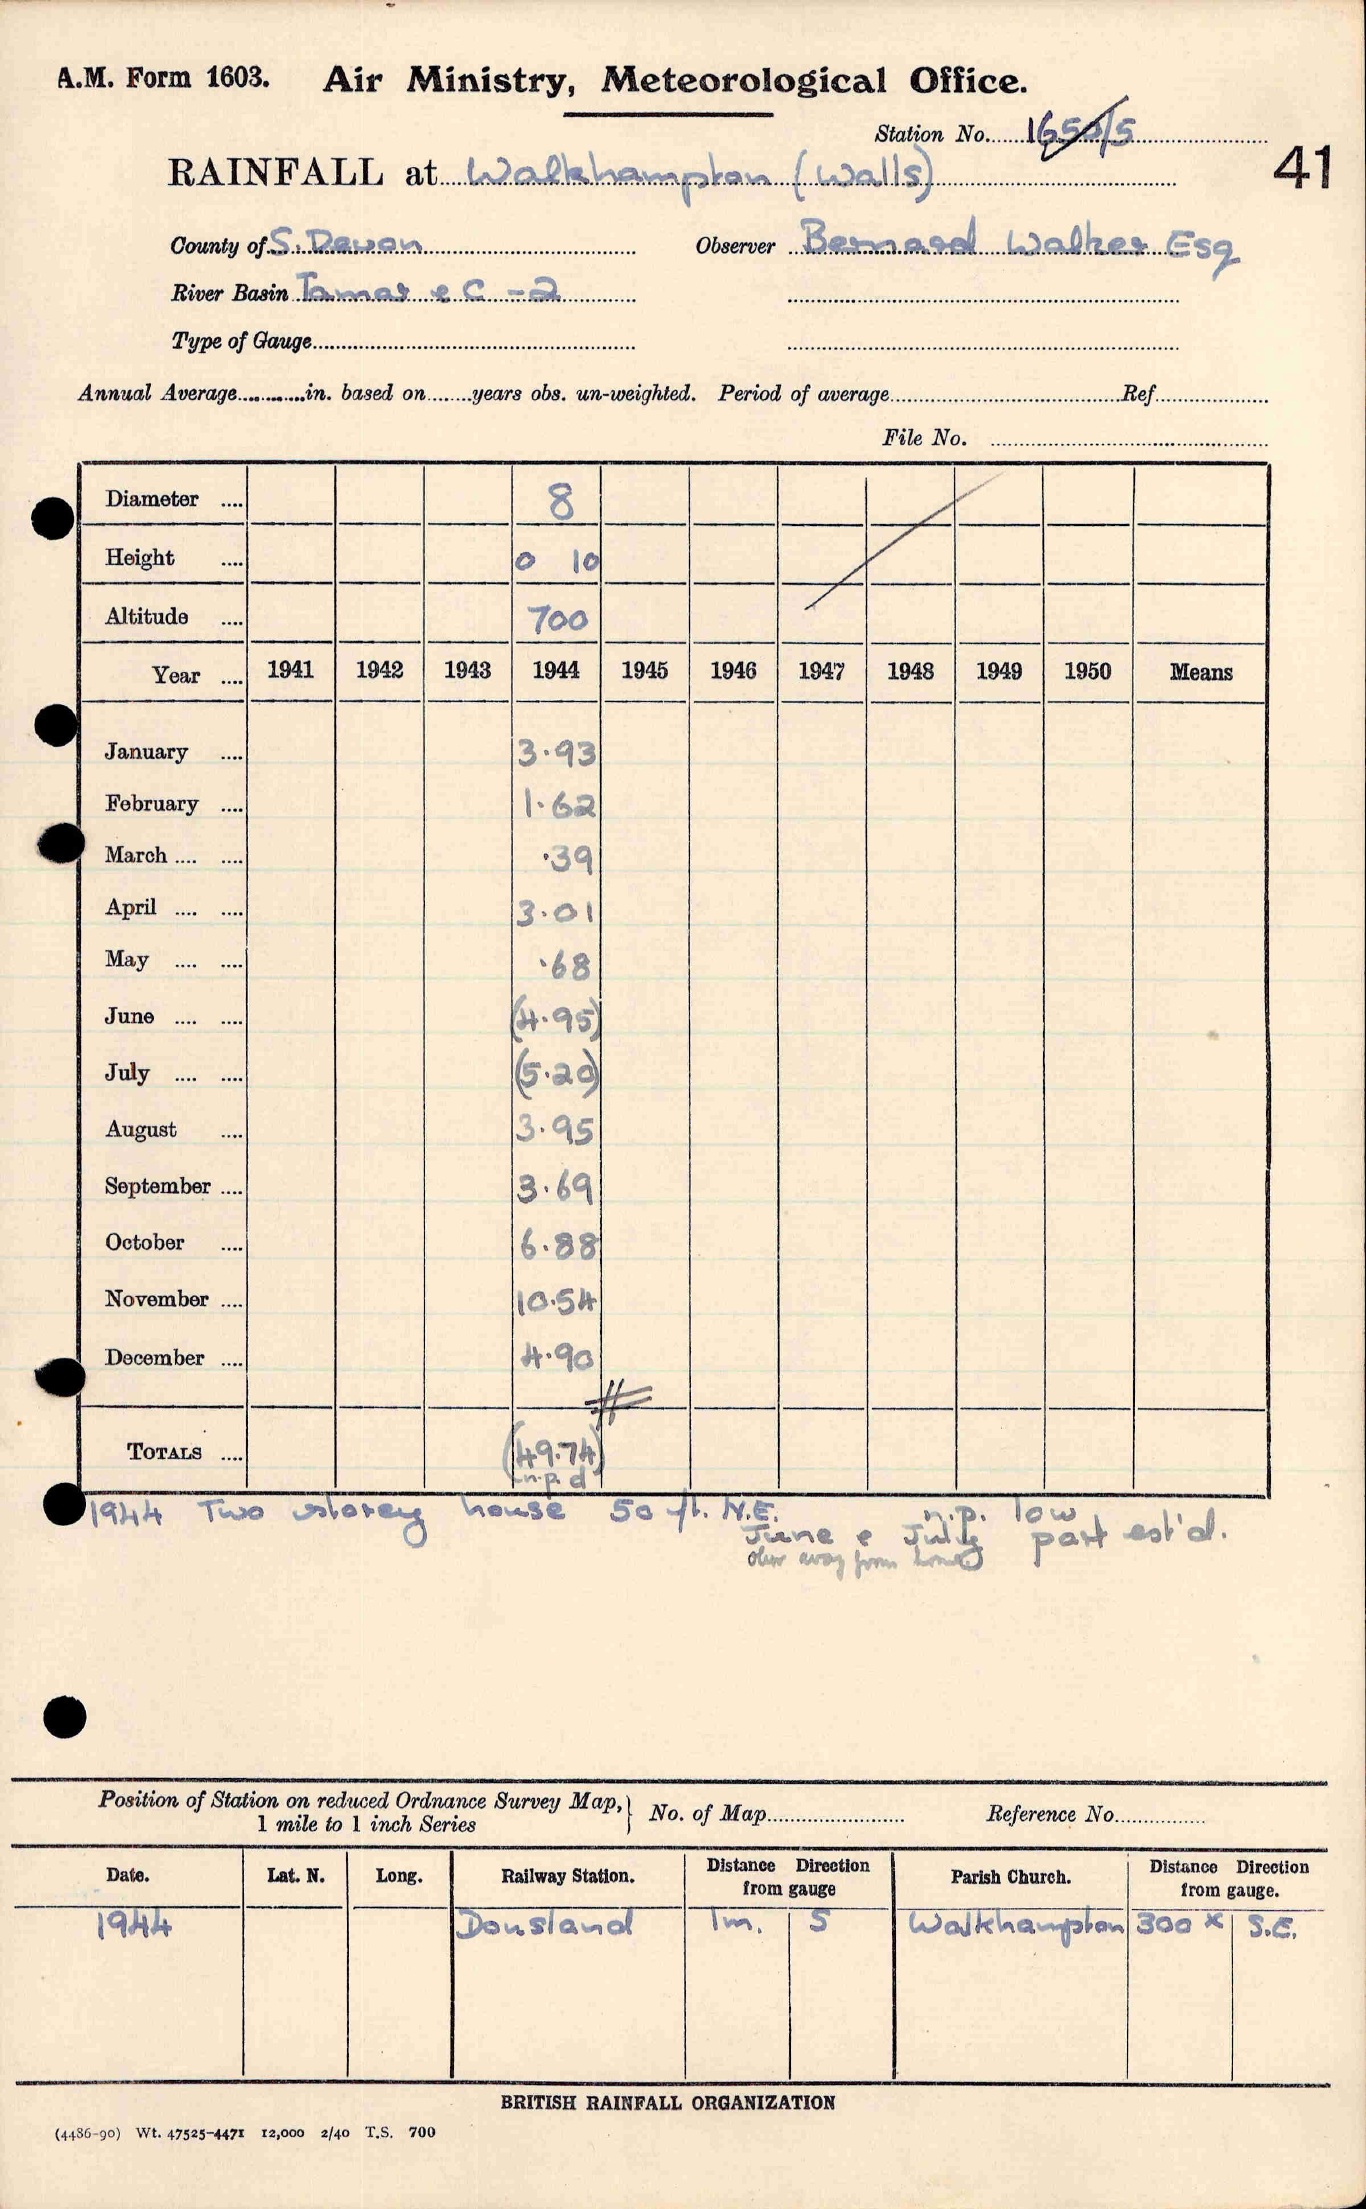 A.M. Form 1603. Air Ministry, Meteorological Office.
Station No. 1650/5
41
RAINFALL at Walkhampton (Walls)
County of S. Devon Observer Bernard Walker Esq
River Basin Tamar & C - 2
Type of Gauge
Annual Average in. based on years obs. un-weighted. Period of average Ref
File No.
Diameter .... 8
Height .... 0 10
Altitude .... 700
Year .... 1941 1942 1943 1944 1945 1946 1947 1948 1949 1950 Means
January .... 3.93
February .... 1.62
March .... .... .39
April .... .... 3.01
May .... .... .68
June .... .... (4.95)
July .... .... (5.20)
August .... 3.95
September .... 3.69
October .... 6.88
November .... 10.54
December .... 4.90
TOTALS .... (49.74)
n.p. d
1944 Two storey house 50 ft. N.E. n.p. low
June & July part est'd.
obsr away from home
Position of Station on reduced Ordnance Survey Map, } No. of Map Reference No.
1 mile to 1 inch Series
Date. Lat. N. Long. Railway Station. Distance Direction from gauge Parish Church. Distance Direction from gauge.
1944 Dousland 1m. S Walkhampton 300 x S.E.
BRITISH RAINFALL ORGANIZATION
(4486-90) Wt. 47525-4471 12,000 2/40 T.S. 700